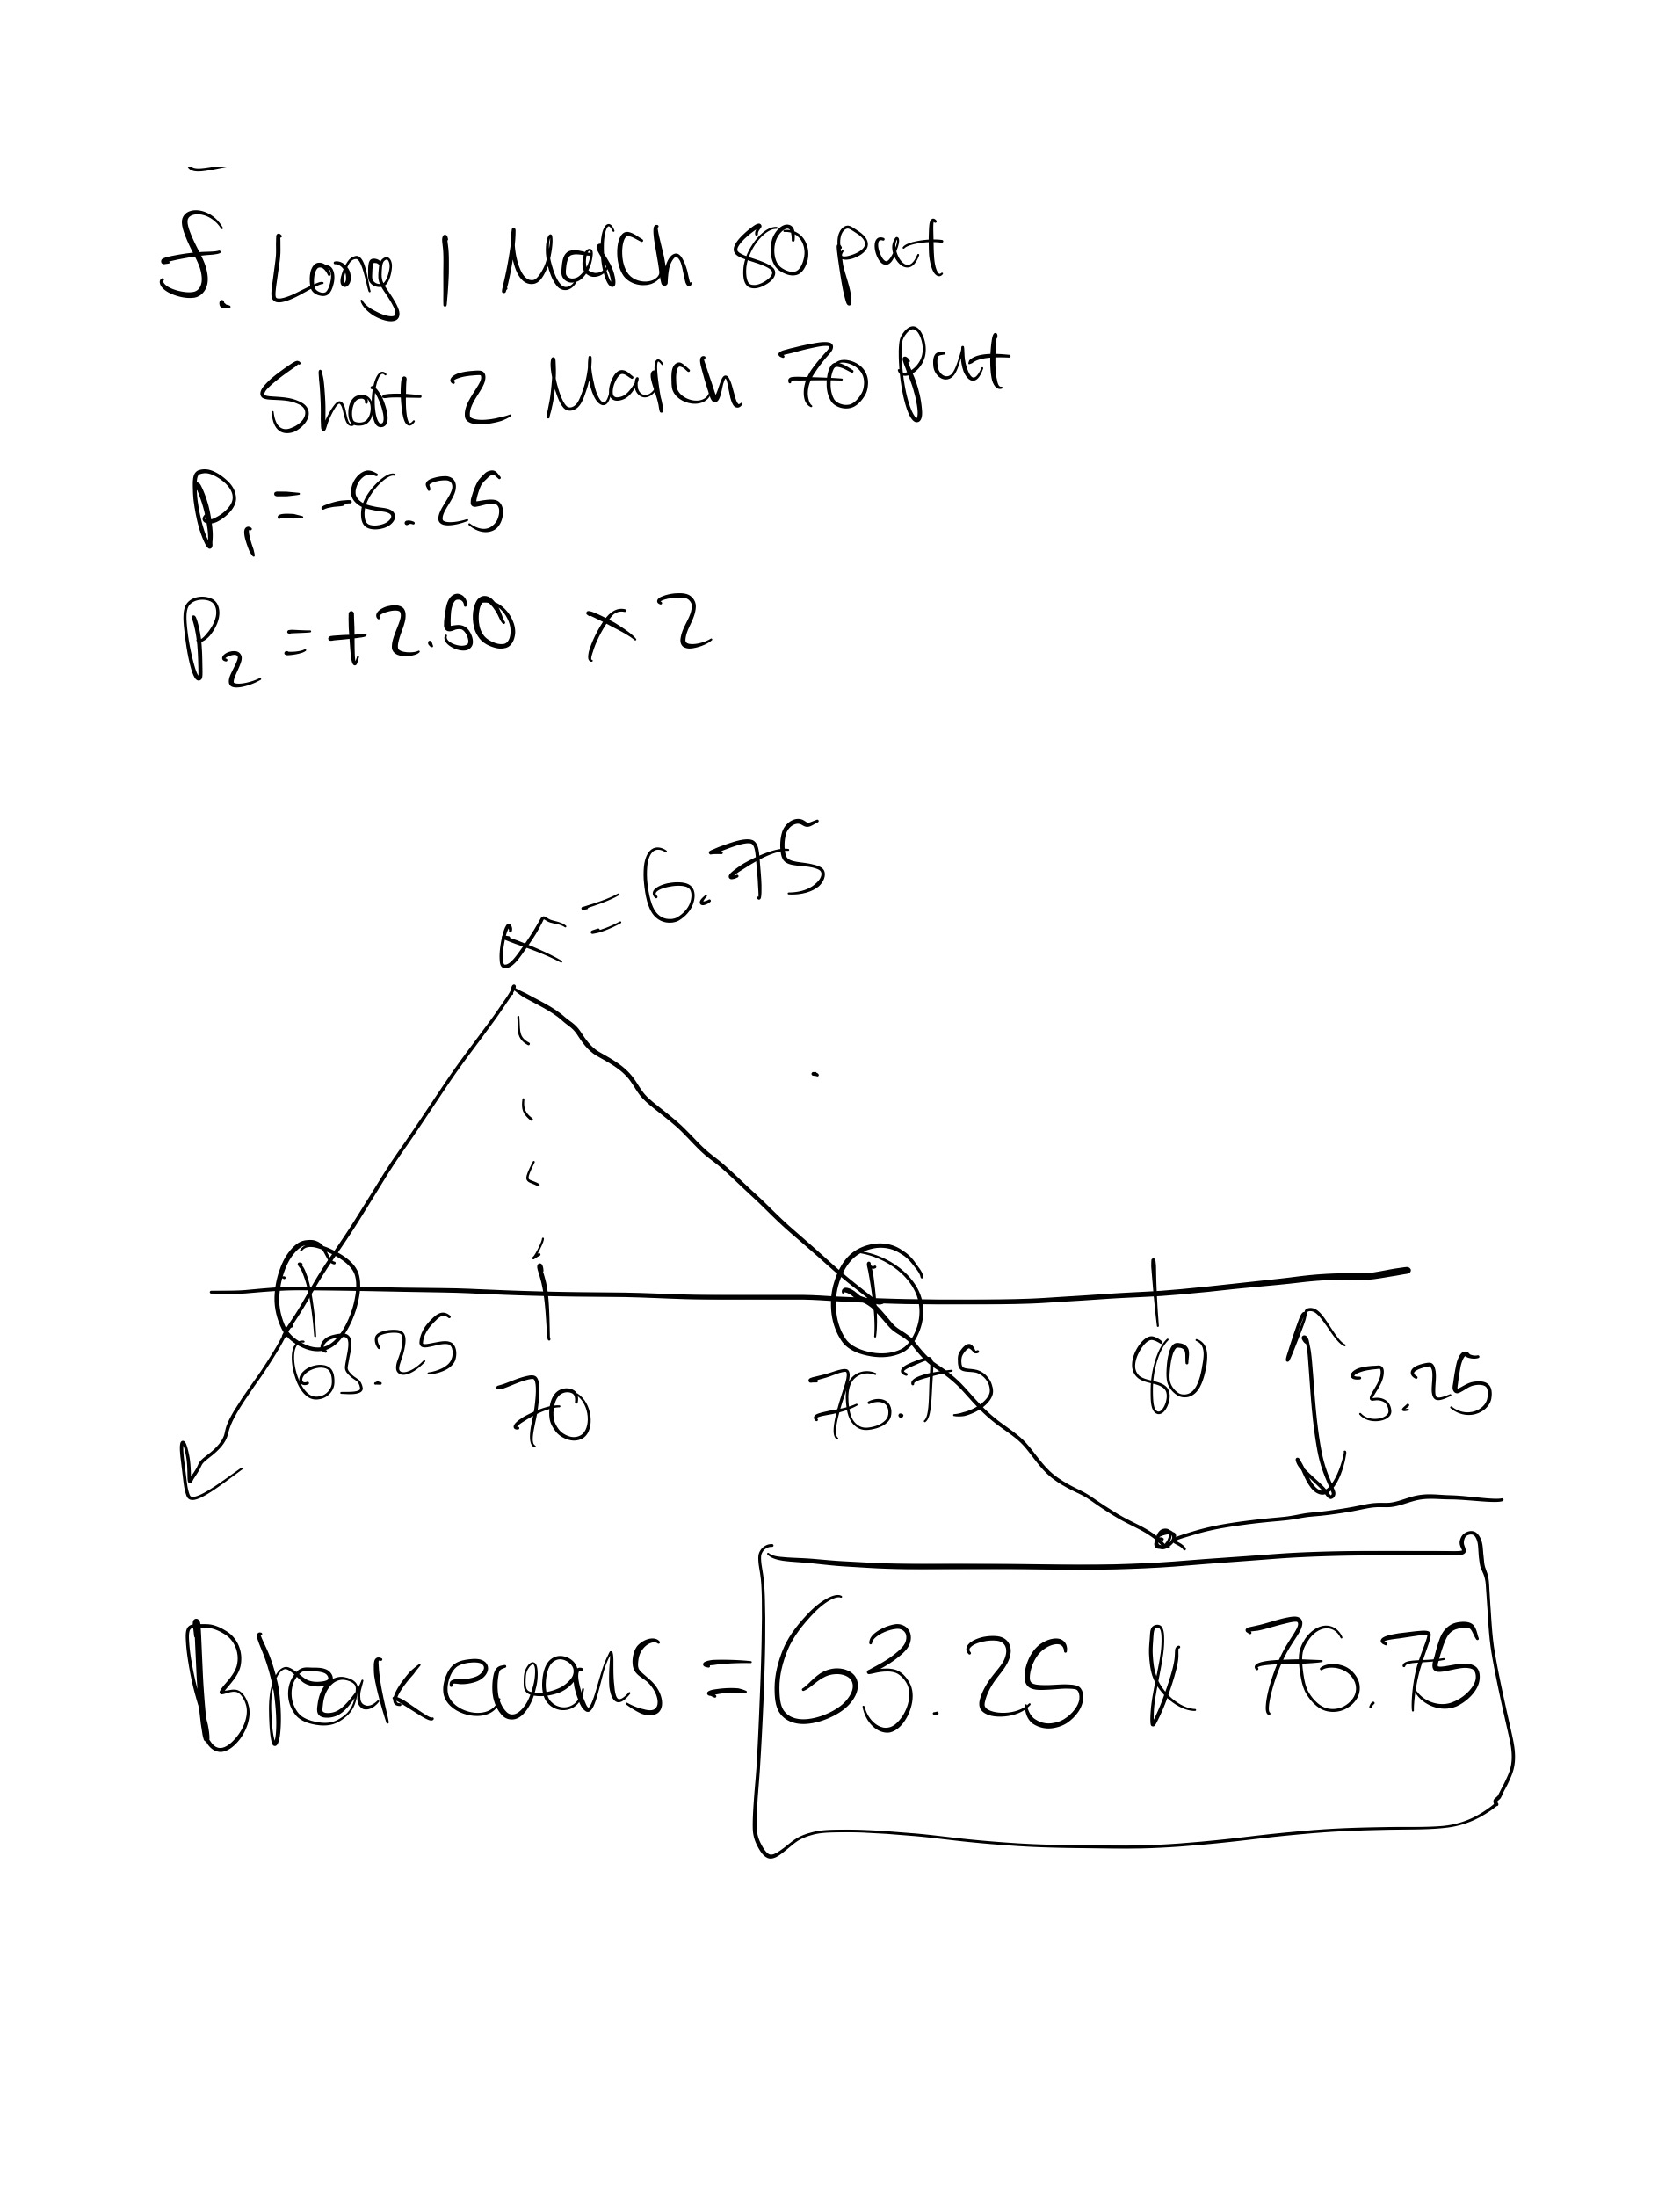 f. Long 1 March 80 put
Short 2 March 70 put
P1 = -8.25
P2 = +2.50 x 2
α = 6.75
63.25
70
76.75
80
3.25
Breakevens = 63.25 & 76.75